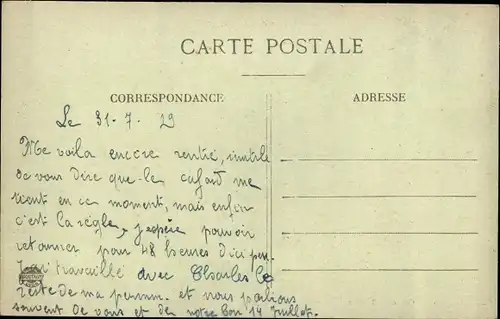 CARTE POSTALE
CORRESPONDANCE
ADRESSE
Le 31-7-29
Me voila encore rentré, inutile
de vous dire que le cafard me
tient en ce moment, mais enfin
c'est la règle, j'espère pouvoir
retourner pour 48 heures d'ici peu.
J'ai travaillé avec Charles le
reste de ma perm. et nous parlions
souvent de vous et de notre bon 14 Juillet.